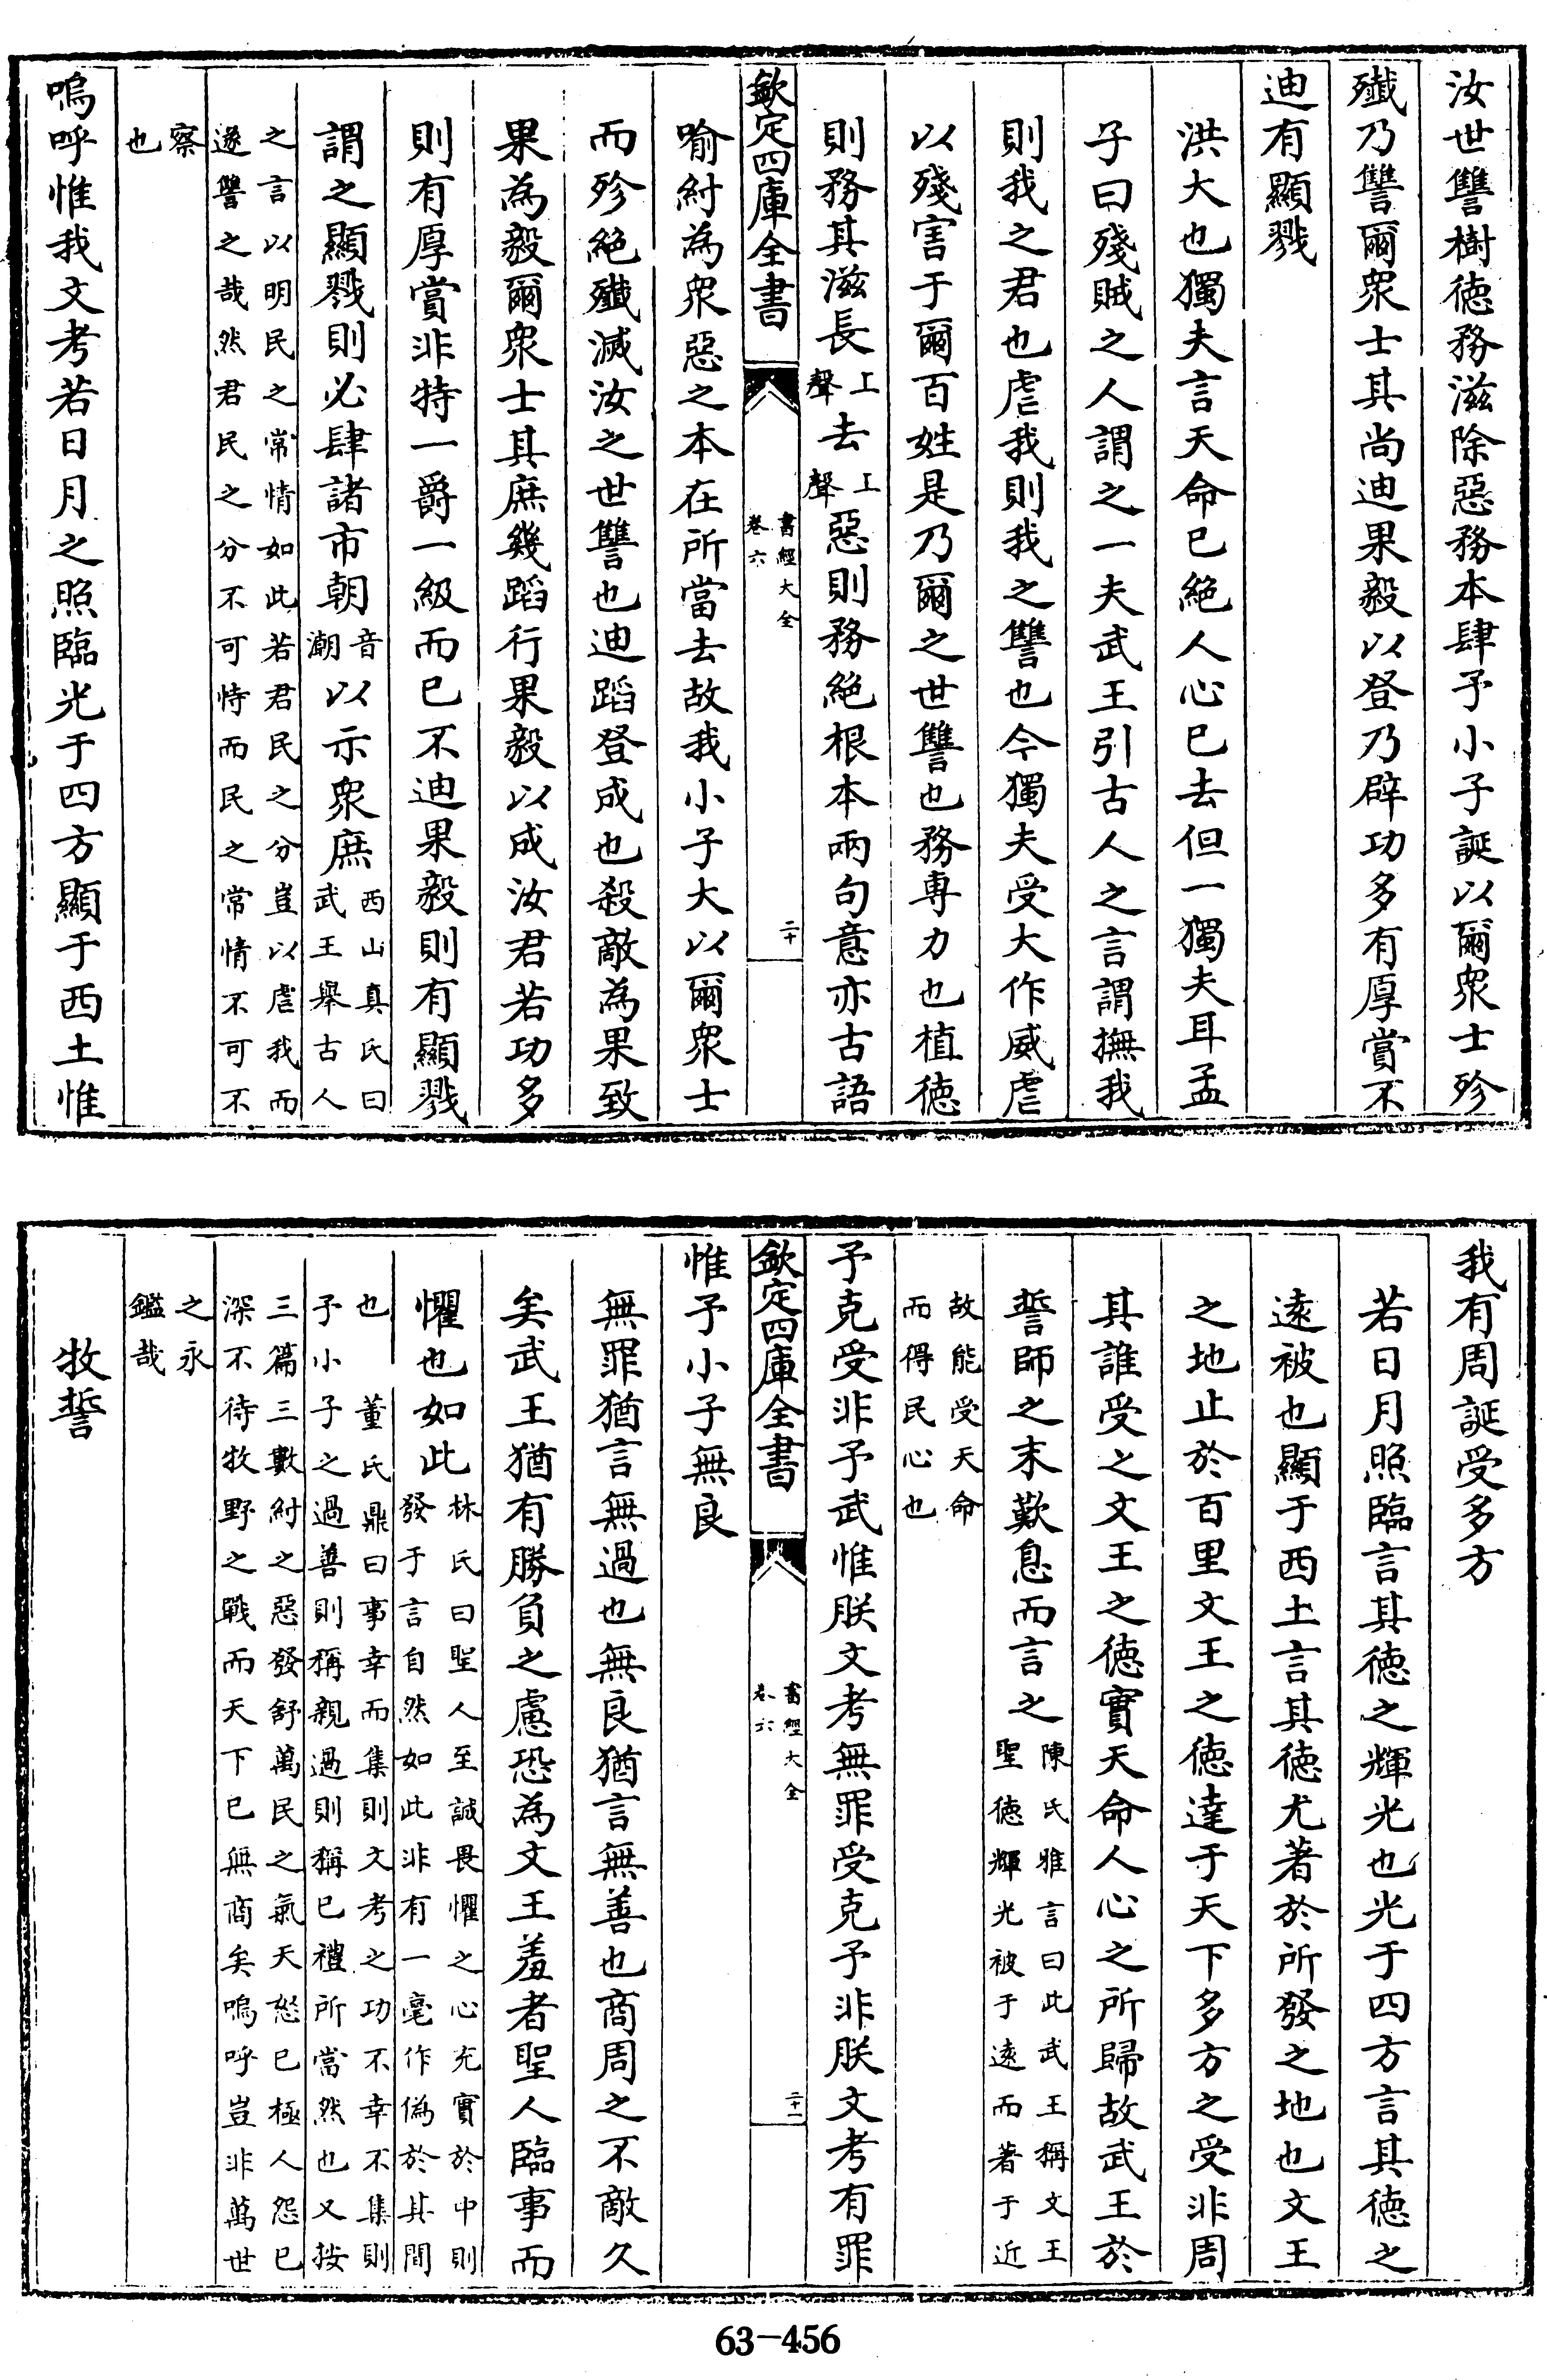 汝世讐樹徳務滋除惡務本肆予小子誕以爾衆士殄
殲乃讐爾衆士其尚迪果毅以登乃辟功多有厚賞不
迪有顯戮
洪大也獨夫言天命已絶人心已去但一獨夫耳孟
子曰殘賊之人謂之一夫武王引古人之言謂撫我
則我之君也虐我則我之讐也今獨夫受大作威虐
以殘害于爾百姓是乃爾之世讐也務専力也植徳
則務其滋長上聲去上聲惡則務絶根本兩句意亦古語
欽定四庫全書
書經大全
卷六
二十
喻紂為衆惡之本在所當去故我小子大以爾衆士
而殄絶殲滅汝之世讐也迪蹈登成也殺敵為果致
果為毅爾衆士其庶幾蹈行果毅以成汝君若功多
則有厚賞非特一爵一級而已不迪果毅則有顯戮
謂之顯戮則必肆諸市朝音潮以示衆庶西山真氏曰武王舉古人
之言以明民之常情如此若君民之分豈以虐我而
遂讐之哉然君民之分不可恃而民之常情不可不
察也
嗚呼惟我文考若日月之照臨光于四方顯于西土惟
我有周誕受多方
若日月照臨言其徳之輝光也光于四方言其徳之
逺被也顯于西土言其徳尤著於所發之地也文王
之地止於百里文王之徳達于天下多方之受非周
其誰受之文王之徳實天命人心之所歸故武王於
誓師之末歎息而言之陳氏雅言曰此武王稱文王聖徳輝光被于逺而著于近
故能受天命
而得民心也
予克受非予武惟朕文考無罪受克予非朕文考有罪
欽定四庫全書
書經大全
卷六
二十一
惟予小子無良
無罪猶言無過也無良猶言無善也商周之不敵久
矣武王猶有勝負之慮恐為文王羞者聖人臨事而
懼也如此林氏曰聖人至誠畏懼之心充實於中則發于言自然如此非有一毫作偽於其間
也　董氏鼎曰事幸而集則文考之功不幸不集則
予小子之過善則稱親過則稱己禮所當然也又按
三篇三數紂之惡發舒萬民之氣天怒已極人怨已
深不待牧野之戰而天下已無商矣嗚呼豈非萬世
之永
鑑哉
牧誓
63-456